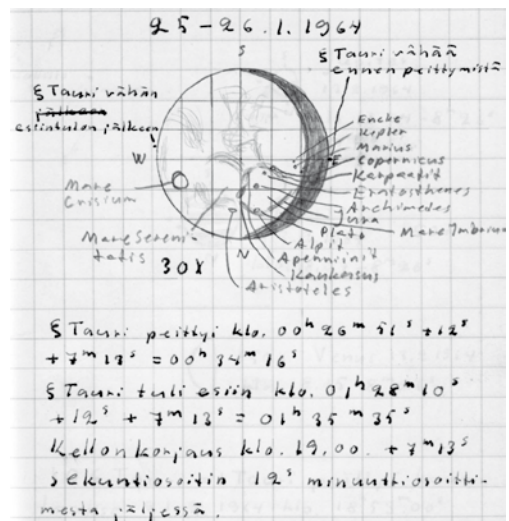 25-26.1.1964
S
§ Tauri vähää
ennen peittymistä
§ Tauri vähän
jälkeen
esiintulon jälkeen!
Encke
Kepler
Marius
W
E
Copernicus
Karpaatit
Eratosthenes
Mare
Crisium
Archimedes
Jura
Mare Imbrium
Plato
Mare Sereni-
tatis
N
Alpit
Apenniinit
30X
Kaukasus
Aristoteles
§ Tauri peittyi klo. 00h 26m 51s +12s
+7m 13s = 00h 34m 16s
§ Tauri tuli esiin klo. 01h 28m 10s
+12s + 7m 13s = 01h 35m 35s
Kellonkorjaus klo. 19.00. +7m 13s
sekuntiosoitin 12s minuuttiosoitti-
mesta jäljessä.